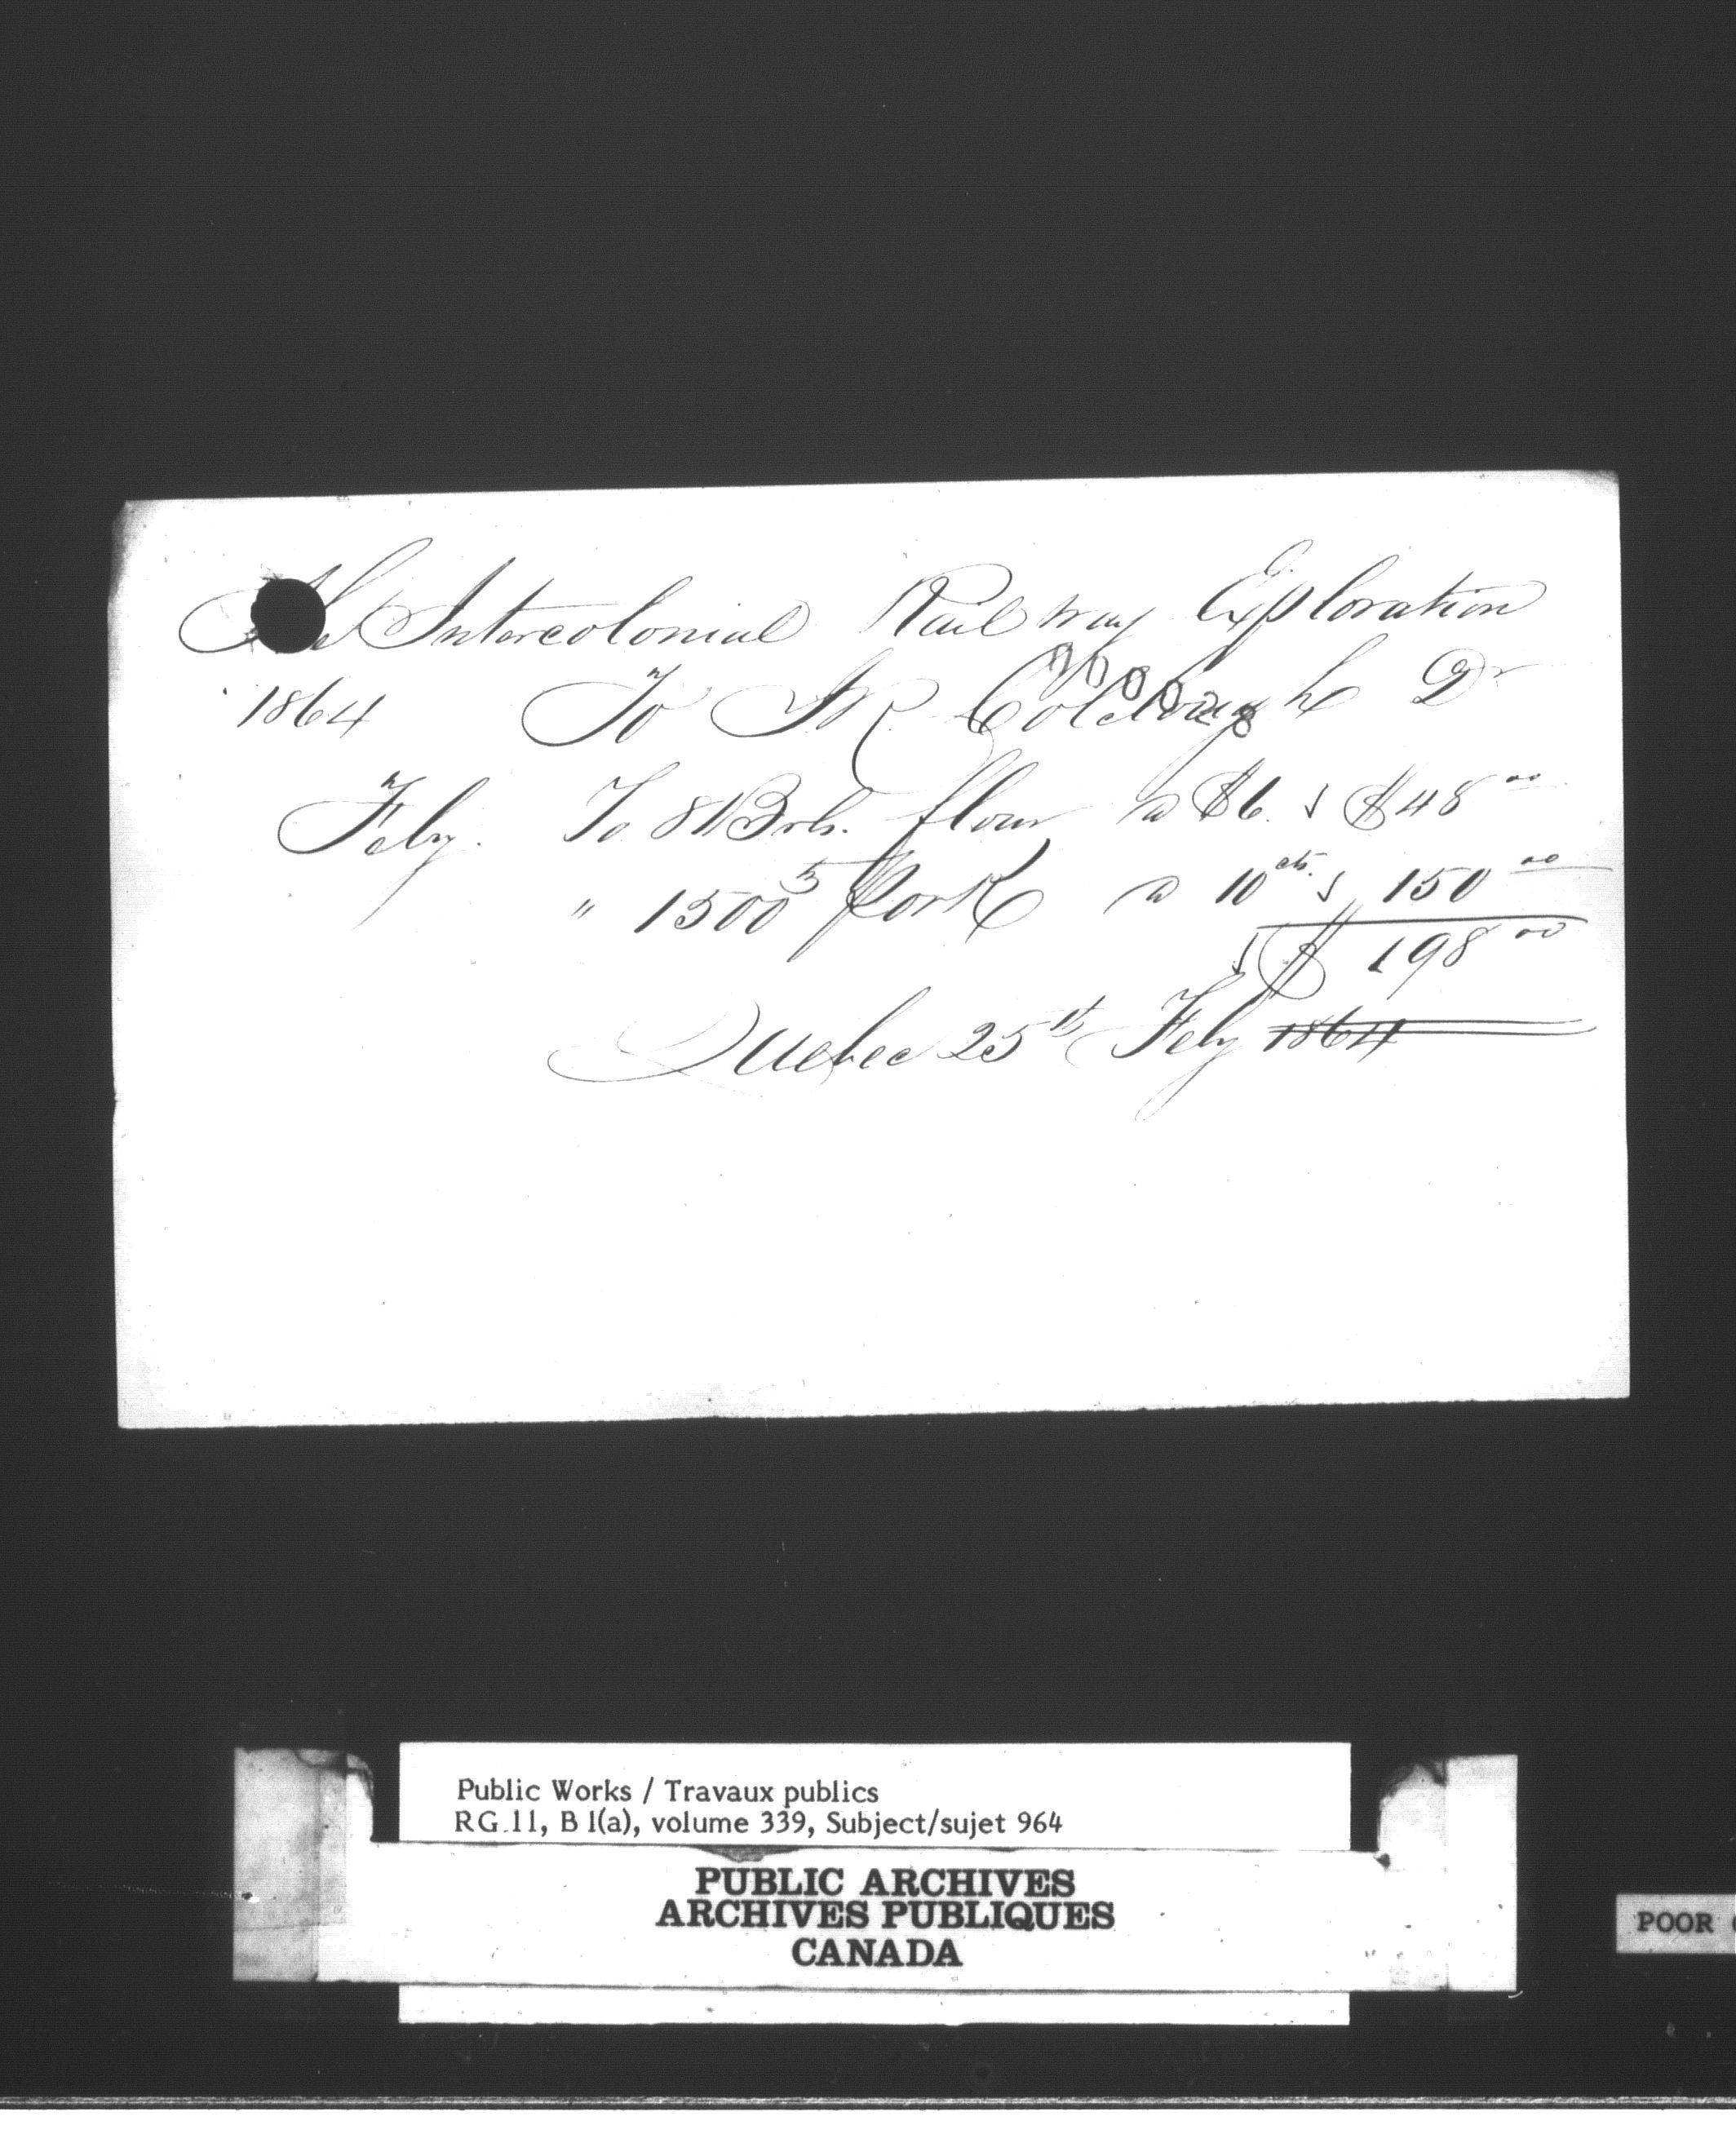 The Intercolonial Railway Exploration
1864 To W R Colclough Dr
Feby. To 8 Brls. flour @ $6. $48 00
" 1500 lb Pork @ 10 cts. 150 00
$ 198 00
Quebec 25th Feby 1864
Public Works / Travaux publics
RG 11, B 1(a), volume 339, Subject/sujet 964
PUBLIC ARCHIVES
ARCHIVES PUBLIQUES
CANADA
POOR